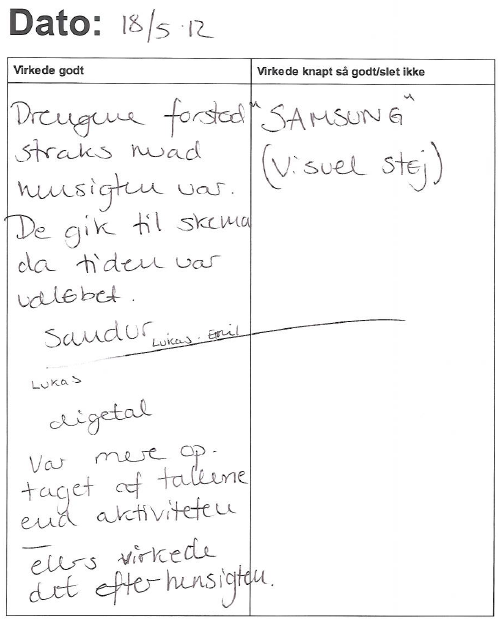 Dato: 18/5-12
Virkede godt
Virkede knapt så godt/slet ikke
Drengene forstod
straks hvad
hensigten var.
De gik til skema
da tiden var
udløbet.
"SAMSUNG"
(Visuel støj)
Sandur Lukas. Emil
Lukas
digetal
Var mere op-
taget af tallene
end aktiviteten
–
ellers virkede
det efter hensigten.